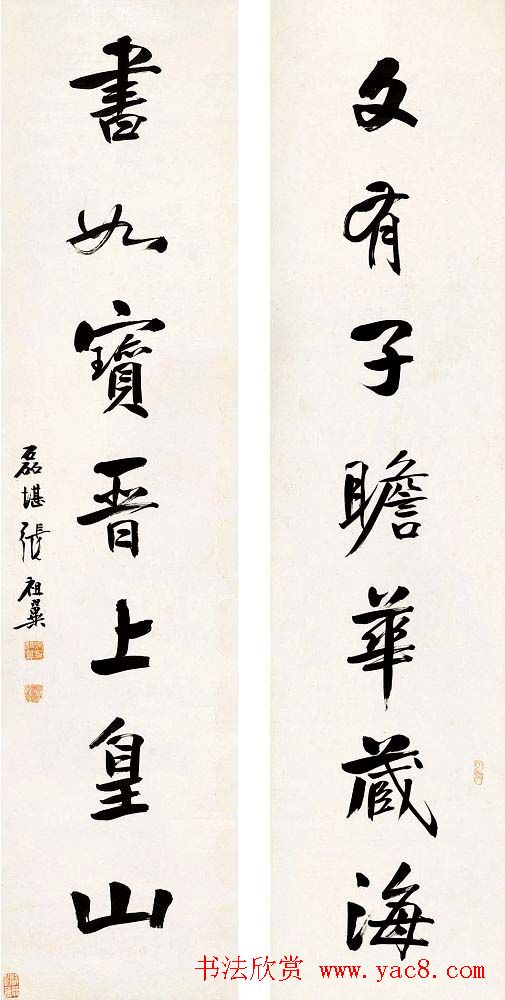 文有子瞻華藏海
書如寶晉上皇山
磊堪張祖翼
书法欣赏 www.yac8.com